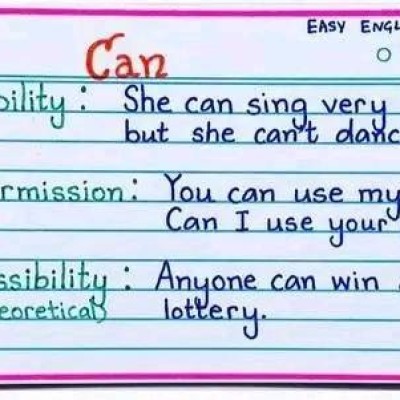 EASY ENGL
Can
bility : She can sing very
but she can't danc
rmission : You can use my
Can I use your
ssibility : Anyone can win
eoretical) lottery.